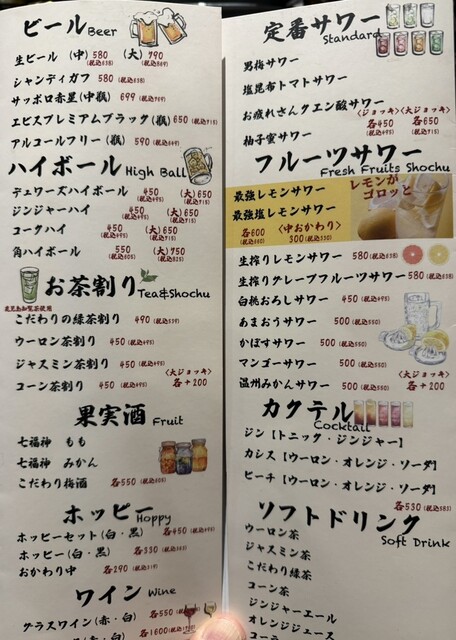 ビール Beer
生ビール (中) 580 (税込638) (大) 790 (税込869)
シャンディガフ 580 (税込638)
サッポロ赤星(中瓶) 699 (税込769)
ヱビスプレミアムブラック(瓶) 650 (税込715)
アルコールフリー(瓶) 590 (税込649)
ハイボール High Ball
デュワーズハイボール 450 (税込495) (大) 650 (税込715)
ジンジャーハイ 450 (税込495) (大) 650 (税込715)
コークハイ 450 (税込495) (大) 650 (税込715)
角ハイボール 550 (税込605) (大) 750 (税込825)
お茶割り Tea&Shochu
鹿児島知覧茶使用
こだわりの緑茶割り 490 (税込539)
ウーロン茶割り 450 (税込495)
ジャスミン茶割り 450 (税込495)
コーン茶割り 450 (税込495)
〈大ジョッキ〉
各+200
果実酒 Fruit
七福神 もも
七福神 みかん
こだわり梅酒 各550 (税込605)
ホッピー Hoppy
ホッピーセット(白・黒) 各450 (税込495)
ホッピー(白・黒) 各330 (税込363)
おかわり中 各290 (税込319)
ワイン Wine
グラスワイン(赤・白) 各550
(赤・白) 各1600
定番サワー Standard
男梅サワー
塩昆布トマトサワー
お疲れさんクエン酸サワー
柚子蜜サワー
〈ジョッキ〉 〈大ジョッキ〉
各450 (税込495) 各650 (税込715)
フルーツサワー
Fresh Fruits Shochu
最強レモンサワー
最強塩レモンサワー
各600 (税込660) 〈中おかわり〉 300 (税込330)
レモンが
ゴロッと
生搾りレモンサワー 580 (税込638)
生搾りグレープフルーツサワー 580 (税込638)
白桃おろしサワー 450 (税込495)
あまおうサワー 500 (税込550)
かぼすサワー 500 (税込550)
マンゴーサワー 500 (税込550)
温州みかんサワー 500 (税込550)
〈大ジョッキ〉
各+200
カクテル
Cocktail
ジン [トニック・ジンジャー]
カシス [ウーロン・オレンジ・ソーダ]
ピーチ [ウーロン・オレンジ・ソーダ]
各530 (税込583)
ソフトドリンク
Soft Drink
ウーロン茶
ジャスミン茶
こだわり緑茶
コーン茶
ジンジャーエール
オレンジジュース